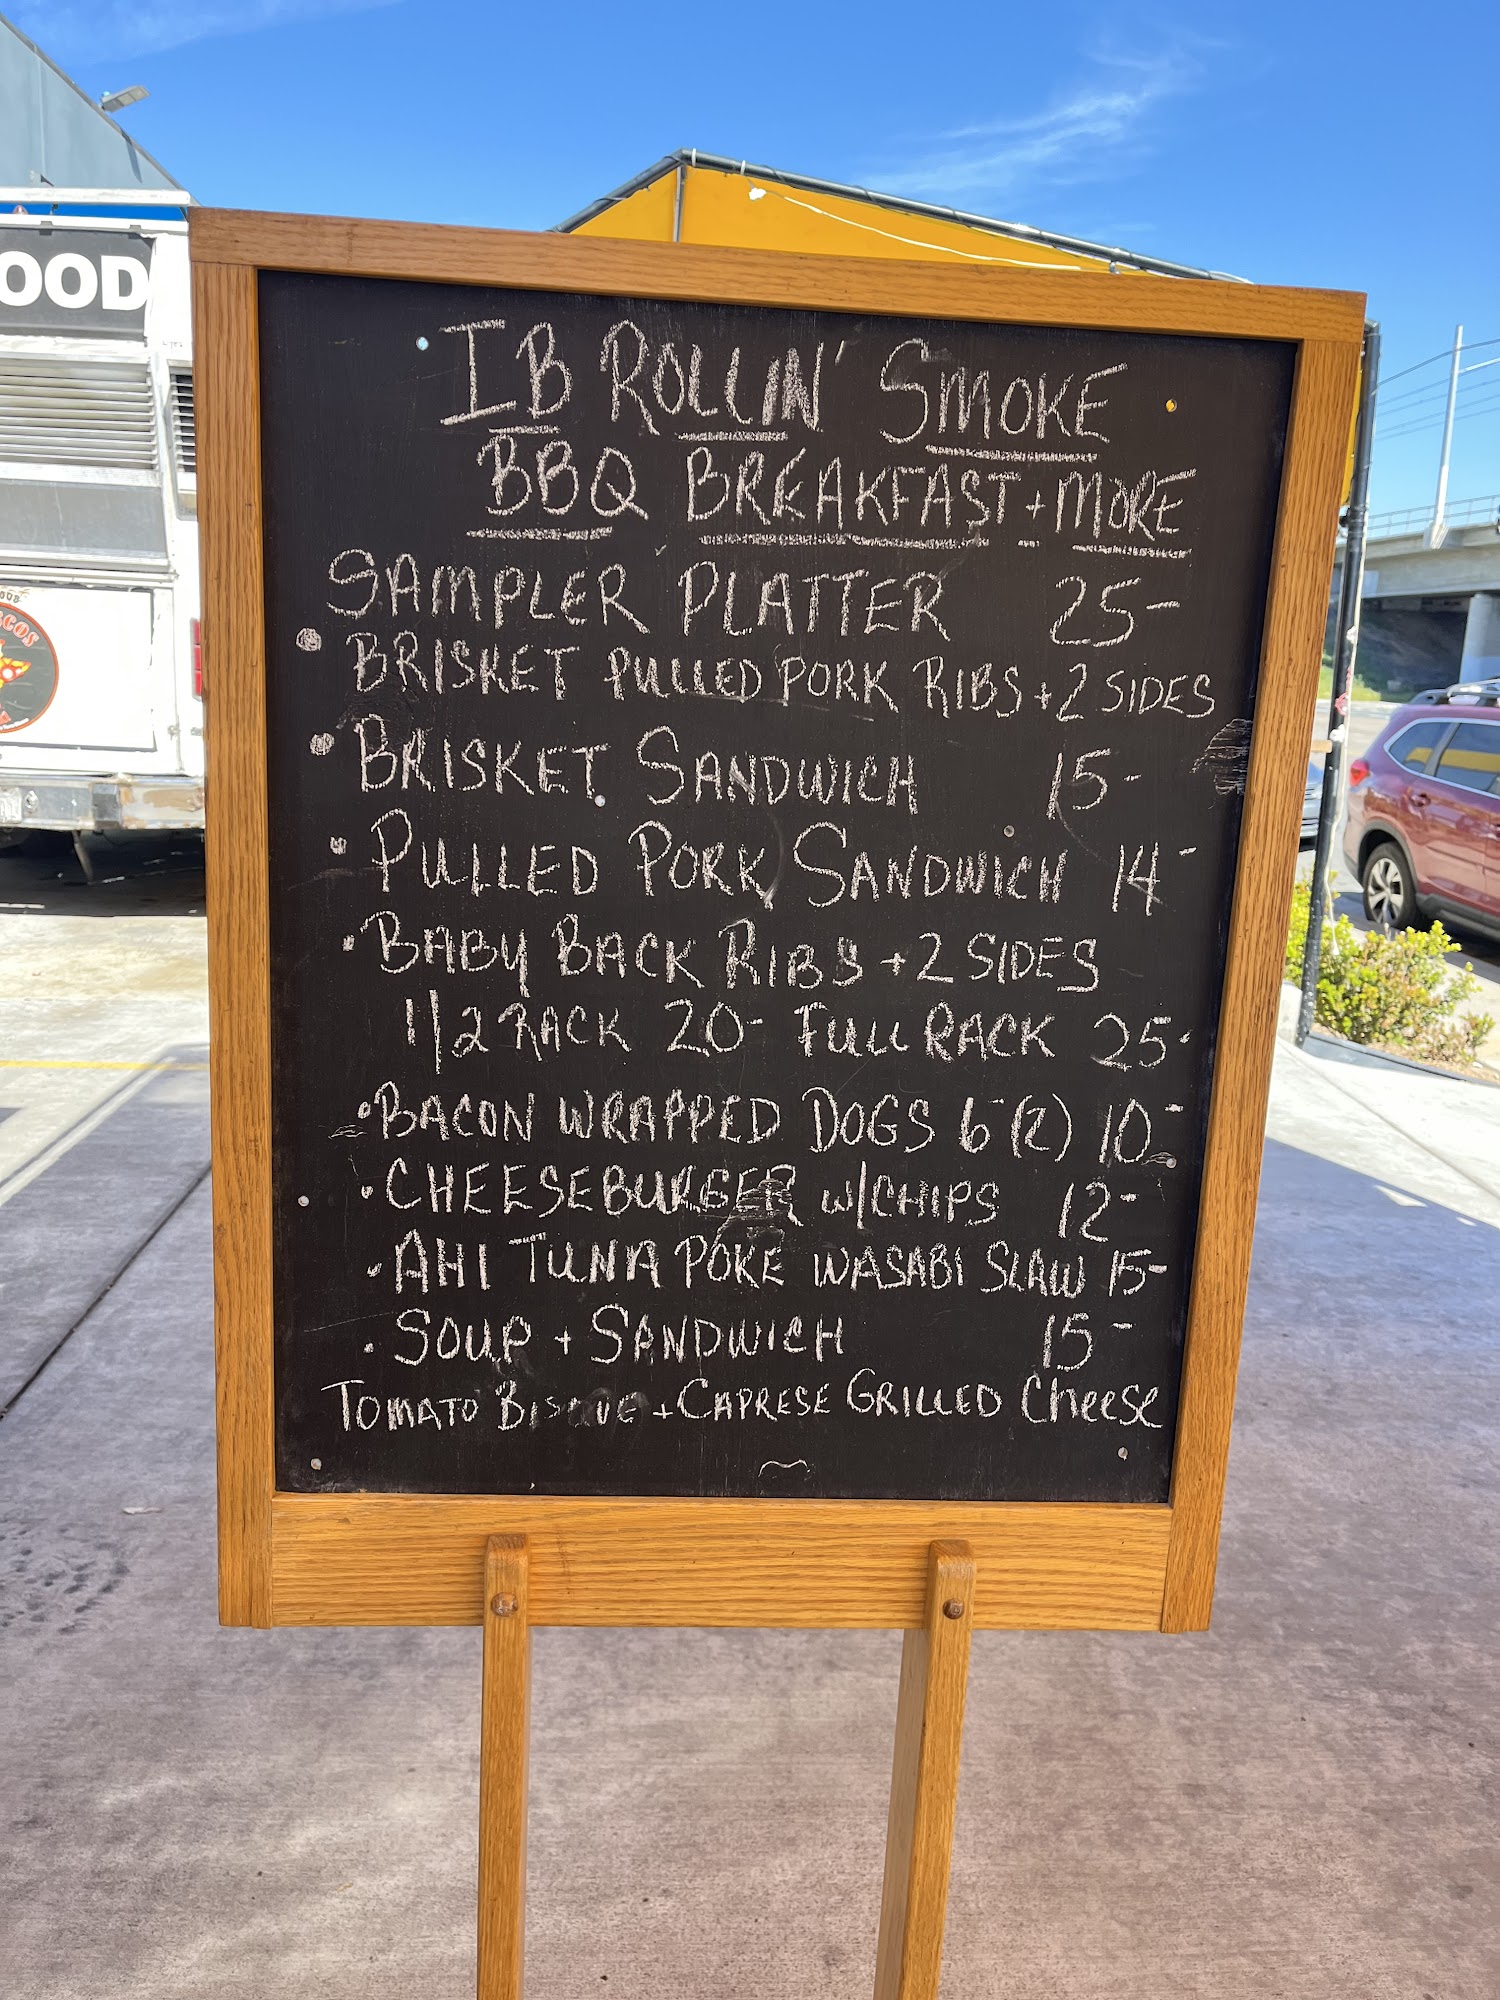 IB ROLLIN' SMOKE
BBQ BREAKFAST + MORE
SAMPLER PLATTER 25-
• BRISKET PULLED PORK RIBS + 2 SIDES
• BRISKET SANDWICH 15-
• PULLED PORK SANDWICH 14-
• BABY BACK RIBS + 2 SIDES
1/2 RACK 20- FULL RACK 25-
• BACON WRAPPED DOGS 6- (2) 10-
• CHEESEBURGER W/CHIPS 12-
• AHI TUNA POKE WASABI SLAW 15-
• SOUP + SANDWICH 15-
TOMATO BISQUE + CAPRESE GRILLED Cheese
OOD